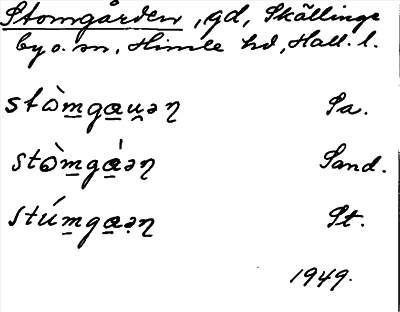 Stomgården, gd, Skällinge
by o. sn, Himle hd, Hall. l.
stòm̲ga̲u̯ən Sa.
stòm̲ga̲̍ən Sand.
stúm̲ga̲ən St.
1949.